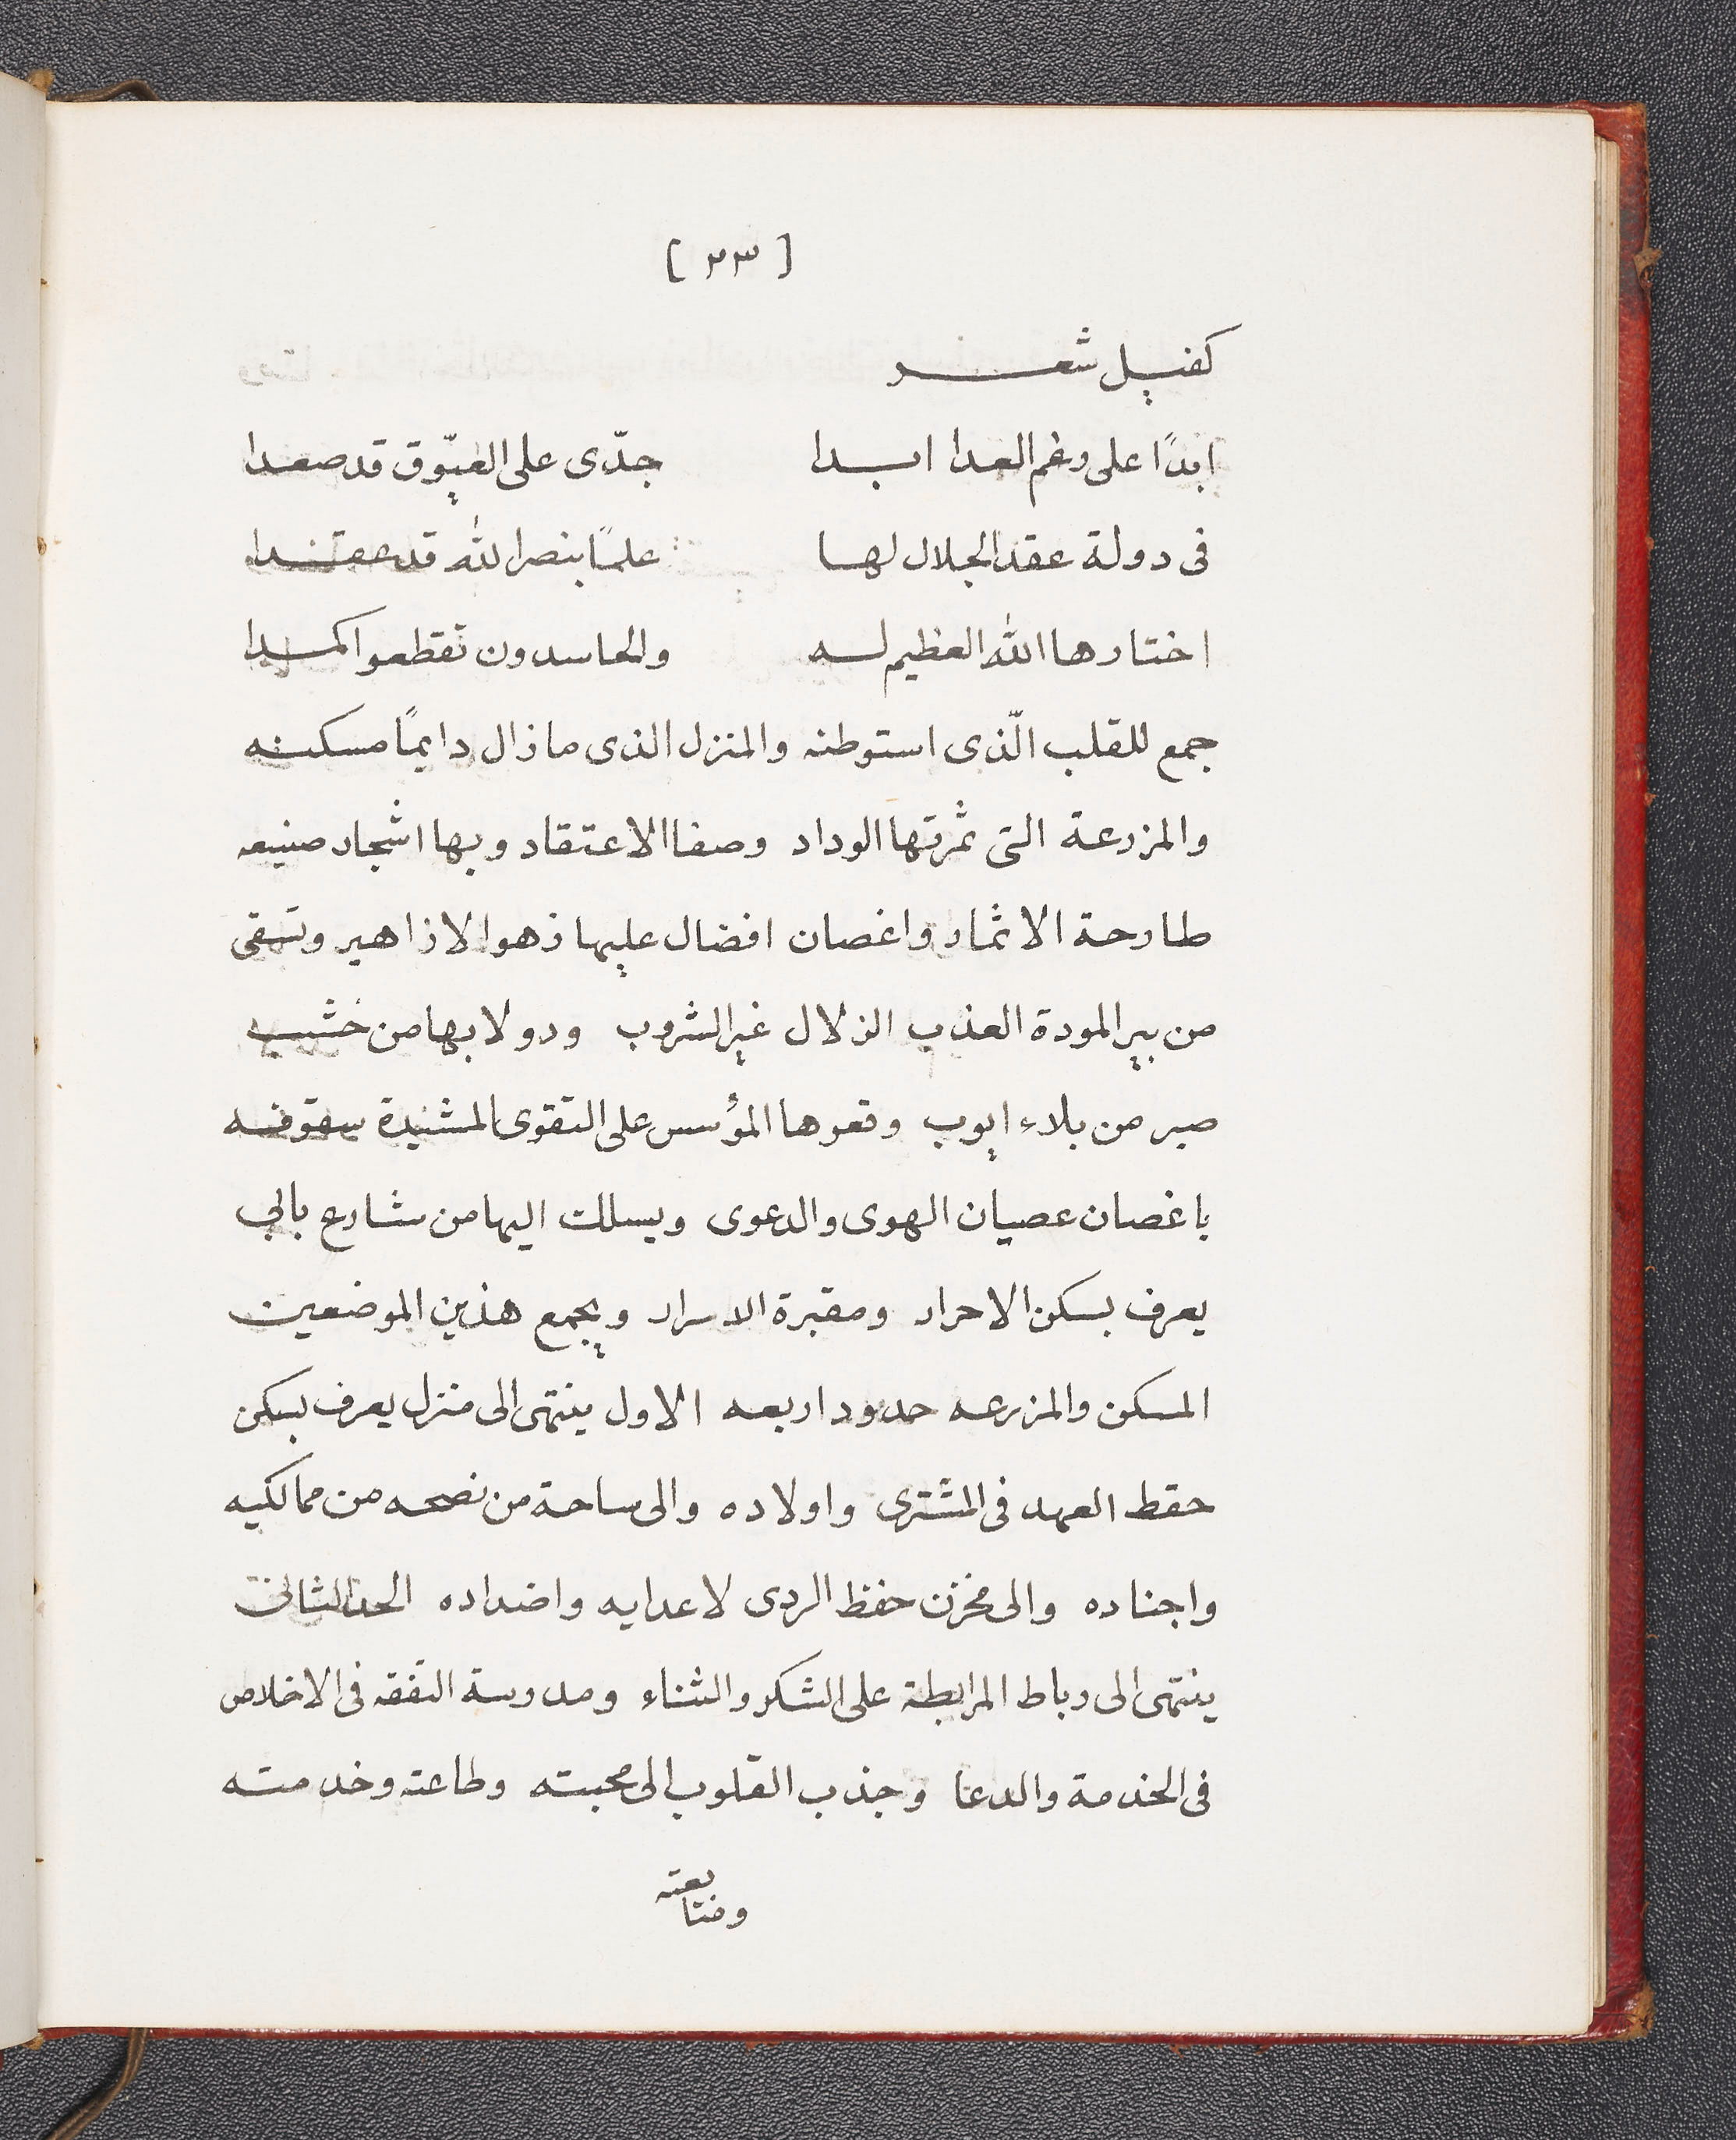 [ ٢٣ ]
كفيل شعر
ابدًا على رغم العدا ابدا جدّى على العيّوق قد صعدا
فى دولة عقد الجلال لها علمًا بنصر الله قد عقدا
اختارها الله العظيم له والحاسدون تقطعوا كمدا
جمع للقلب الّذى استوطنه والمنزل الذى مازال دايمًا مسكنه
والمزرعة التى ثمرتها الوداد وصفا الاعتقاد وبها اشجار صنيعه
طارحة الاثمار واغصان افضال عليها زهو الازاهير وتسقى
من بير المودة العذب الزلال غير الشروب ودولابها من خشب
صبر من بلاء ايوب وقعرها المؤسس على التقوى المشيدة سقوفه
باغصان عصيان الهوى والدعوى ويسلك اليها من شارع بالى
يعرف بسكن الاحرار ومقبرة الاسرار ويجمع هذين الموضعين
المسكن والمزرعه حدود اربعه الاول ينتهى الى منزل يعرف بسكن
حفظ العهد فى المشترى واولاده والى ساحة من نصحه من مماليكه
واجناده والى مخزن حفظ الردى لاعدايه واضداده الحد الثانى
ينتهى الى رباط المرابطة على الشكر والثناء ومدرسة التفقه فى الاخلاص
فى الخدمة والدعا وجذب القلوب الى محبته وطاعته وخدمته
ومتابعته